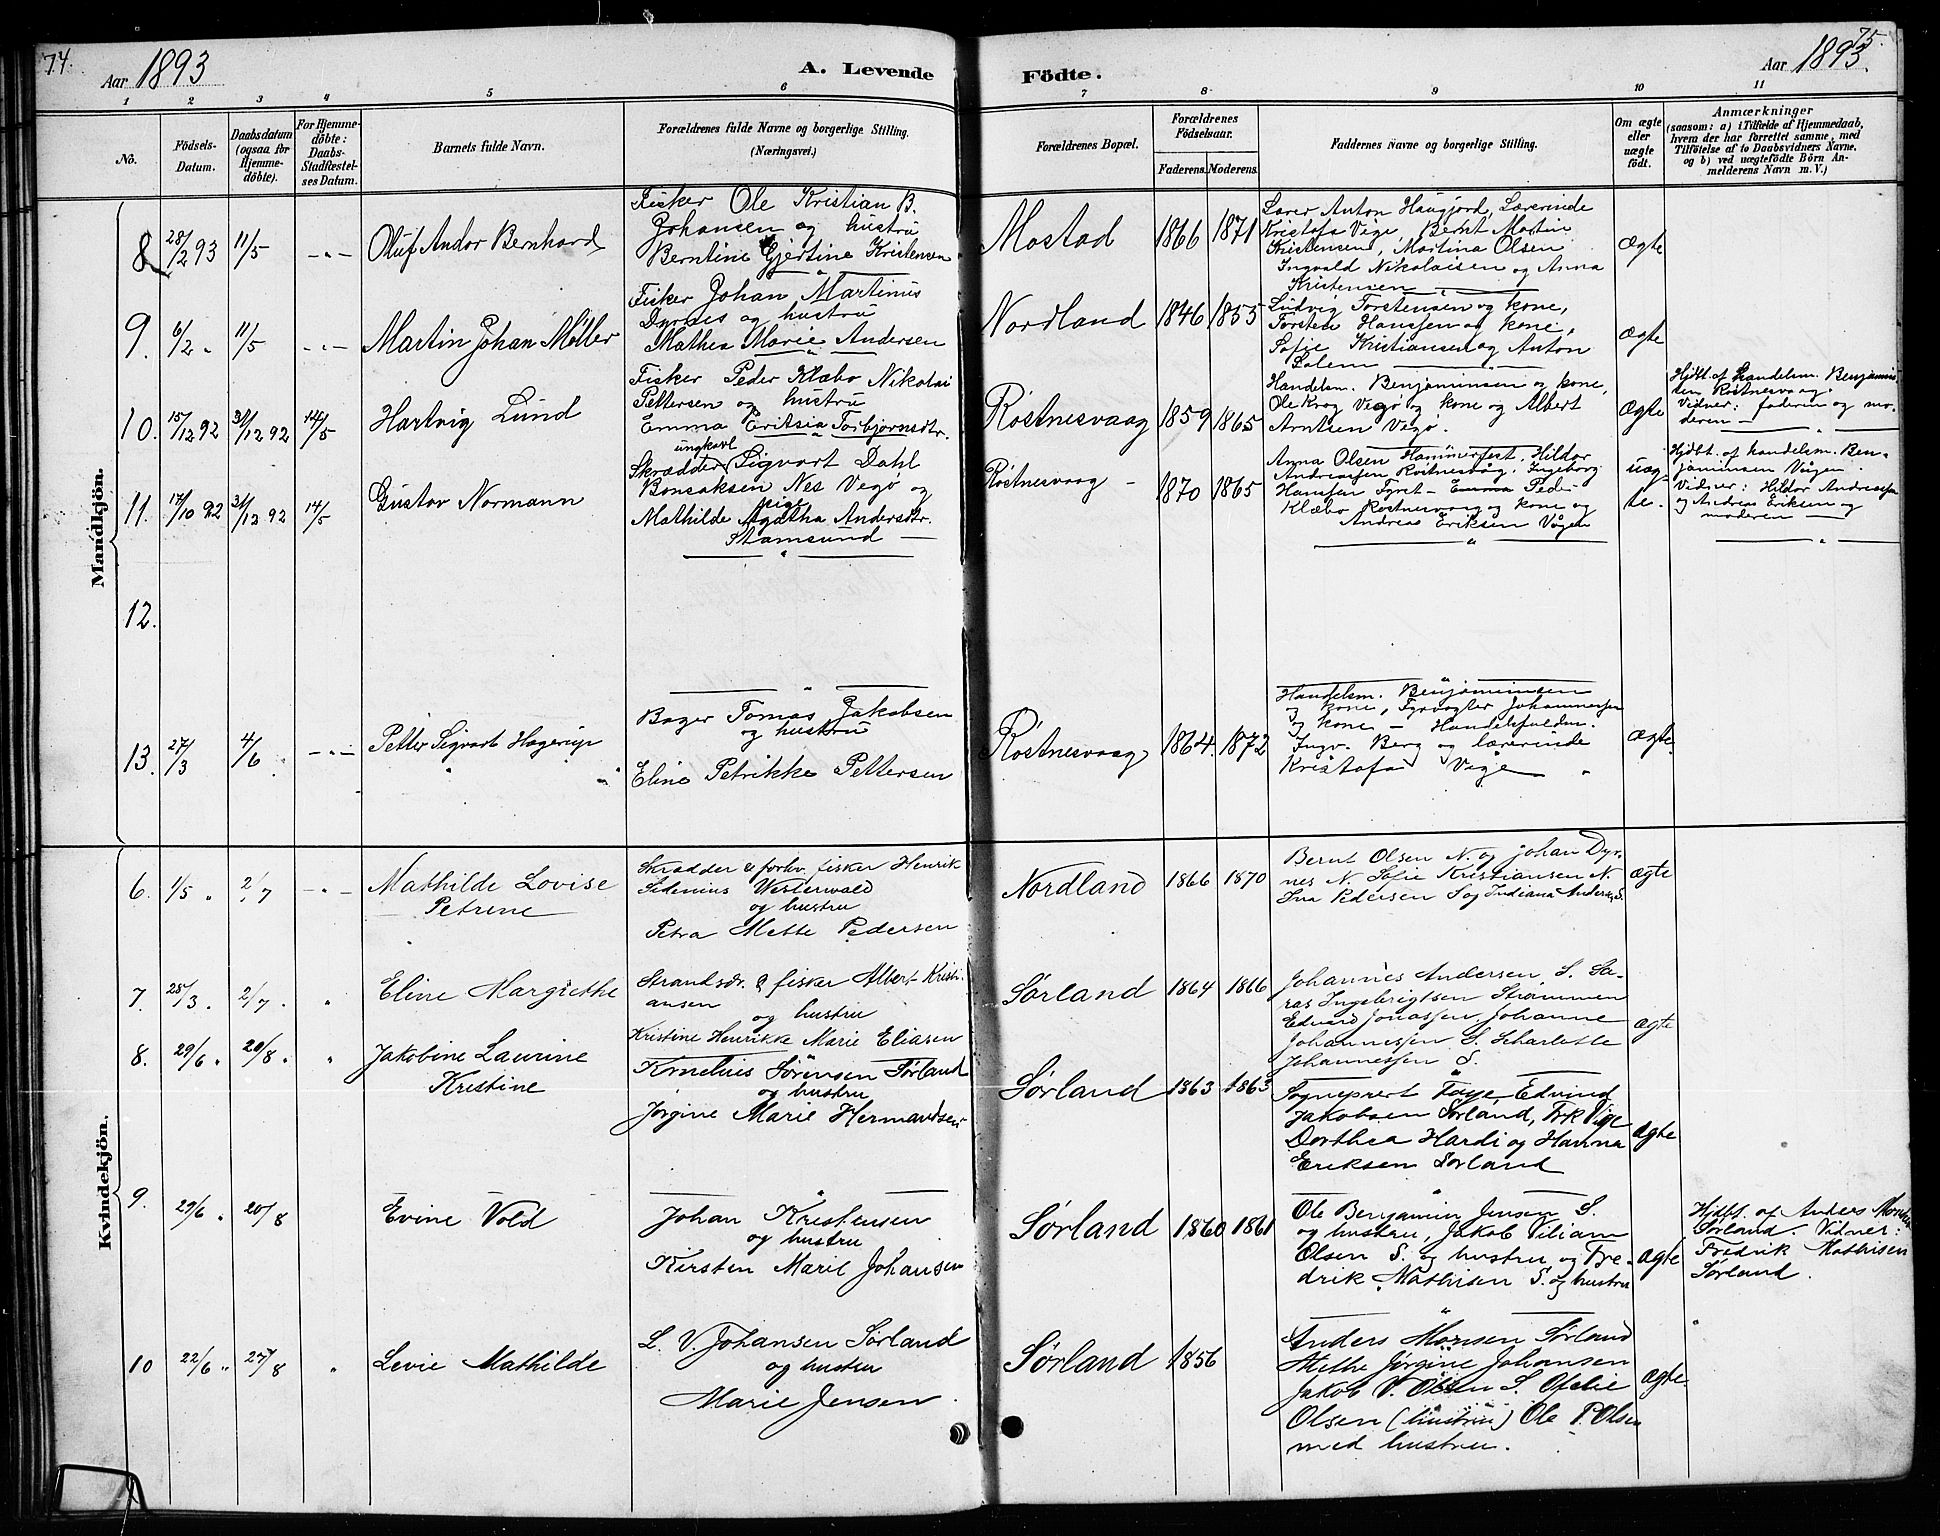 74.
Aar 1893
A. Levende
Födte.
75.
Aar 1893.
1 2 3 4 5 6 7 8 9 10 11
No.
Födsels-Datum.
Daabsdatum (ogsaa for Hjemmedöbte).
For Hjemmedöbte: Daabs-Stadfæstelses Datum.
Barnets fulde Navn.
Forældrenes fulde Navne og borgerlige Stilling.
(Næringsvei.)
Forældrenes Bopæl.
Forældrenes Födselsaar.
Faderens. Moderens.
Faddernes Navne og borgerlige Stilling.
Om ægte eller uægte födt.
Anmærkninger
(saasom: a) i Tilfælde af Hjemmedaab,
hvem der har forrettet samme, med
Tilföielse af to Daabsvidners Navne,
og b) ved uægtefödte Börn An-
melderens Navn m. V.)
Mandkjön.
8 28/2 93 11/5 -"- Oluf Andor Bernhard
Fisker Ole Kristian B.
Johansen og hustru
Berntine Gjertine Kristensen
Mostad 1866 1871
Lærer Anton Haugjord, Lærerinde
Kristofa Vige, Bernt Martin
Kristensen, Martina Olsen
Ingvald Nikolaisen og Anna
Kristensen
Ægte
9. 6/2 " 11/5 -"- Martin Johan Møller
Fisker Johan Martinus
Dyrnes og hustru
Mathea Marie Andersen
Nordland 1846 1855
Ludvig Torstensen og kone,
Torsten Hanssen og kone,
Sofie Kristiansen og Anton
Solem
ægte
10. 15/12 92 31/12 92 14/5 Hartvig Lund
Fisker Peder Klæbo Nikolai
Pettersen og hustru
Emma Eritsea Torbjørnsdtr.
Røstnesvaag 1859 1865
Handelsm. Benjaminsen og kone,
Ole Krog Vegø og kone og Albert
Arntsen Vegø.
Ægte
Hjdbt. af handelsm. Benjamin-
sen Røstnesvaag.
Vidner: faderen og mo-
deren
11. 17/10 92 31/12 92 14/5 Gustav Normann
ungkarl
Skrædder Sigvart Dahl
Bonsaksen Nes Vegø og
pige
Mathilde Agatha Andersdtr.
Stamsund
Røstnesvaag - 1870 1865
Anna Olsen Hammerfest, Hildor
Andreassen Røstnesvåg, Ingeborg
Hanssen Fyret - Emma Peder
Klæbo Røstnesvaag og kone og
Andreas Eriksen Vågen
uæg-
te.
Hjdbt. af handelsm. Ben-
jaminsen Vågen.
Vidner: Hildor Andreassen
og Andreas Eriksen og
moderen
12.
13. 27/3 4/6 -"- Petter Sigvart Hagerup
Bager Tomas Jakobsen
og hustru
Eline Petrikke Pettersen
Røstnesvaag 1864. 1872
Handelsm. Benjaminsen
og kone, Fyrvogter Johannessen
og kone - Handelsfuldm.
Ingv. Berg og lærerinde
Kristofa Vige
ægte.
Kvindekjön.
6. 1/5 " 2/7 -"- Mathilde Lovise
Petrine
Skrædder & forhv. fisker Henrik
Sedenius Westerwald
og hustru
Petra Mette Pedersen
Nordland 1866 1870
Bernt Olsen N. og Johan Dyr-
nes N. Sofie Kristiansen N.
Ina Pedersen S og Indiana Anders. S.
ægte
7. 28/3 " 2/7 " Eline Margrethe
Strandsdr. & fisker Albert Kristi-
ansen
og hustru
Kristine Henrikke Marie Eliasen
Sørland 1864 1866
Johannes Andersen S. Sa-
ras Ingebrigtsen Strømmen
Edvard Jonassen, Johanne
Johannessen S. Scharlotte
Johannessen S.
ægte
8. 29/6 " 20/8 " Jakobine Laurine
Kristine
Kornelius Sörensen Sørland
og hustru
Jørgine Marie Hermandsen
Sørland 1863 1863
Sogneprest Faye, Edvind
Jakobsen Sørland, Frk Vige
Dorthea Hardi og Hanna
Eriksen Sørland
ægte
9. 29/6 " 20/8 Evine Vold
Johan Kristensen
og hustru
Kirsten Marie Johansen
Sørland 1860 1861
Ole Benjamin Jensen S.
og hustru, Jakob Viliam
Olsen S. og hustru og Fre-
drik Mathisen S. og hustru
ægte
Hjdbt. af Anders
Sørland. Vidner:
Fredrik Mathisen
Sørland.
10 22/6 " 27/8 " Levie Mathilde
L. V. Johansen Sørland
og hustru
Marie Jensen
Sørland 1856
Anders Monsen Sørland
Methe Jörgine Johansen
Jakob V. Olsen S. Ofelie
Olsen (hustru) Ole P. Olsen
med hustru.
ægte.